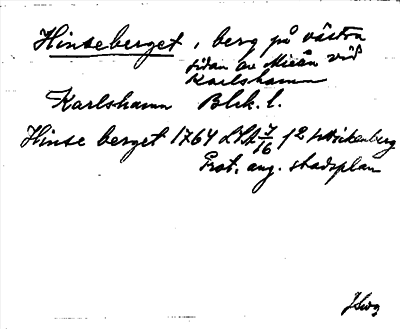 Hinseberget, berg på västra
sidan av Mieån vid
Karlshamn
Karlshamn Blek. l.
Hinse berget 1764 LSA 7/16 f 2 Wöckenberg
Prot. ang. stadsplan